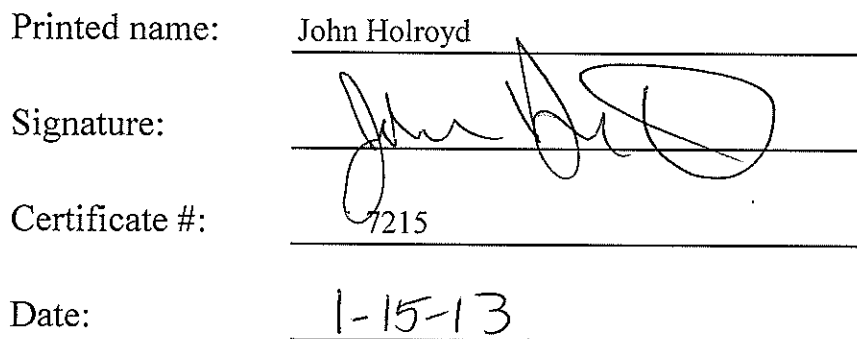 Printed name: John Holroyd
Signature: John
Certificate #: 7215
Date: 1-15-13